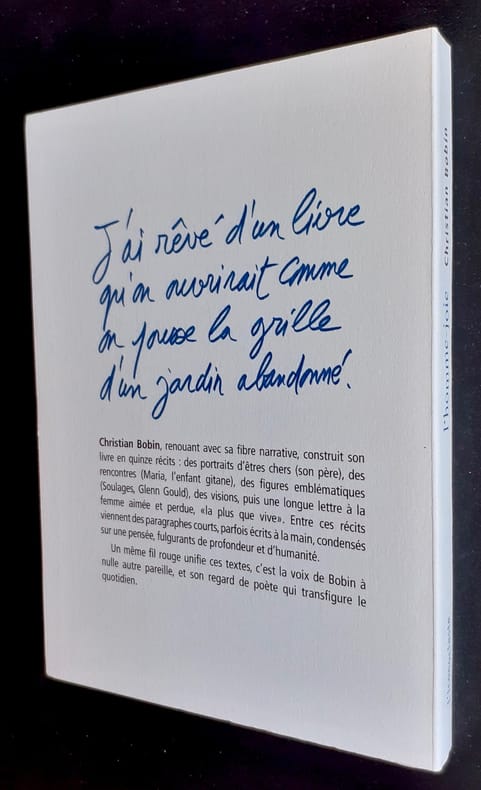 J'ai rêvé d'un livre
qu'on ouvrirait comme
on pousse la grille
d'un jardin abandonné.
Christian Bobin, renouant avec sa fibre narrative, construit son
livre en quinze récits : des portraits d'êtres chers (son père), des
rencontres (Maria, l'enfant gitane), des figures emblématiques
(Soulages, Glenn Gould), des visions, puis une longue lettre à la
femme aimée et perdue, «la plus que vive». Entre ces récits
viennent des paragraphes courts, parfois écrits à la main, condensés
sur une pensée, fulgurants de profondeur et d'humanité.
Un même fil rouge unifie ces textes, c'est la voix de Bobin à
nulle autre pareille, et son regard de poète qui transfigure le
quotidien.
l'homme-joie Christian Bobin